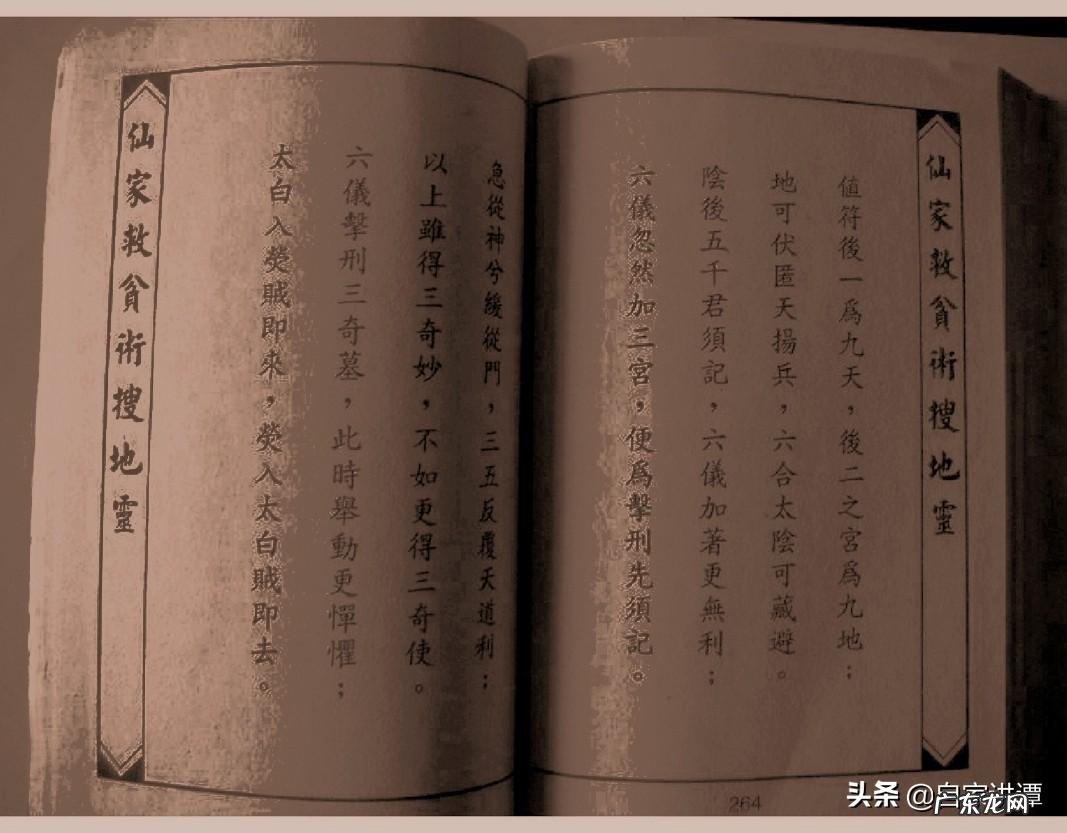 仙家救貧術搜地靈
值符後一為九天，後二之宮為九地；
地可伏匿天揚兵，六合太陰可藏避。
陰後五千君須記，六儀加著更無利；
六儀忽然加三宮，便為擊刑先須記。
急從神兮緩從門，三五反覆天道利；
以上雖得三奇妙，不如更得三奇使。
六儀擊刑三奇墓，此時舉動更憚懼；
太白入熒賊即來，熒入太白賊即去。
仙家救貧術搜地靈
264
头条 @
广东龙网